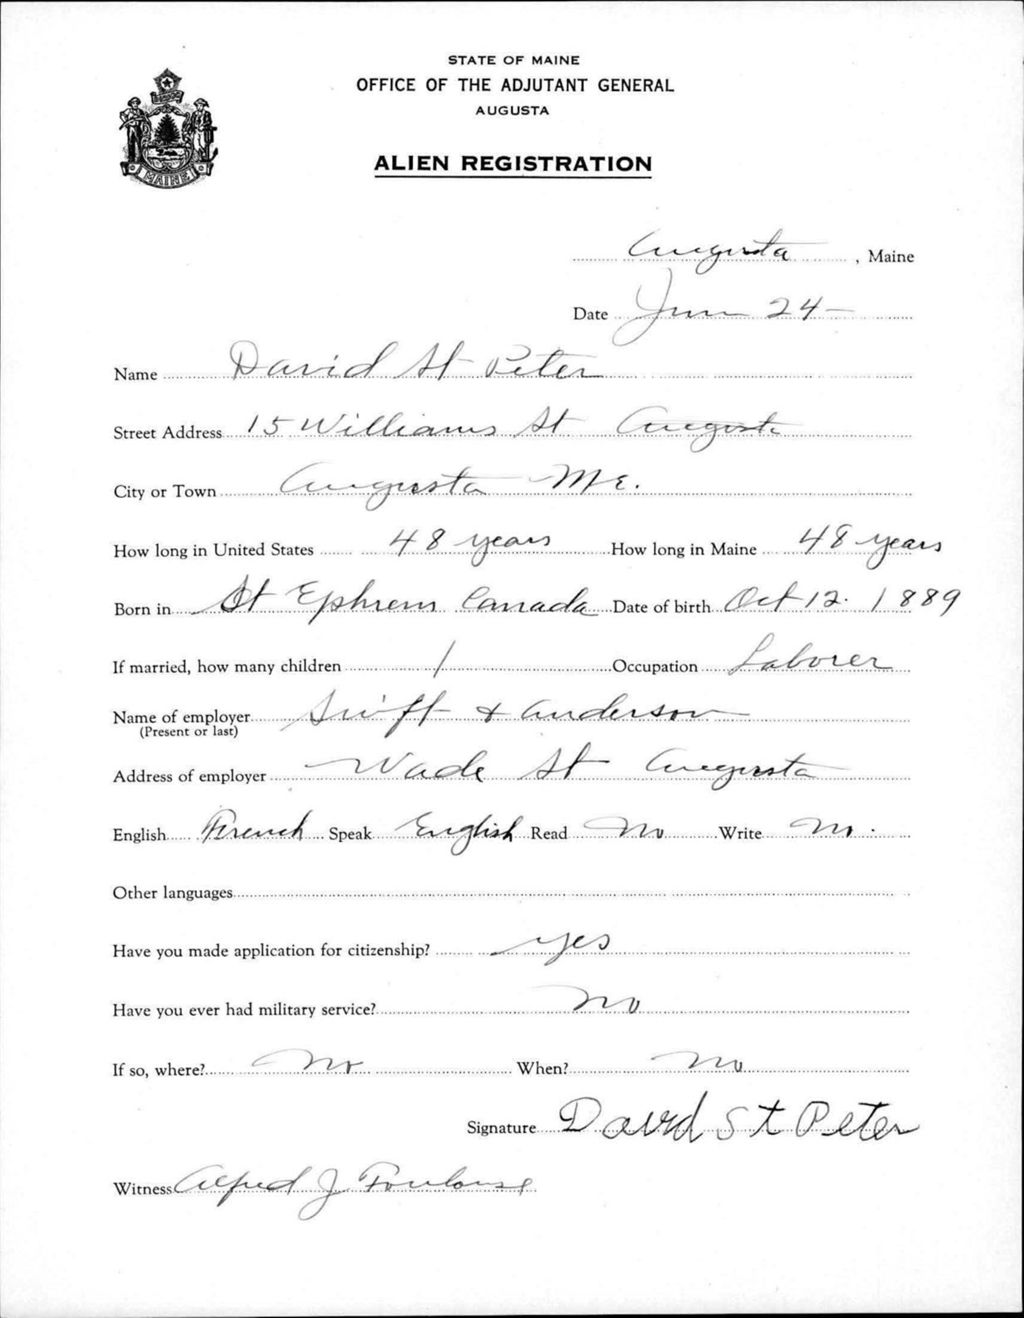 STATE OF MAINE
OFFICE OF THE ADJUTANT GENERAL
AUGUSTA
ALIEN REGISTRATION
MAINE
Augusta, Maine
Date June 24-
Name David St Peter
Street Address 15 Williams St Augusta
City or Town Augusta Me.
How long in United States 48 years How long in Maine 48 years
Born in St Ephrem Canada Date of birth Oct 12. 1889
If married, how many children 1 Occupation Laborer
Name of employer Swift & Anderson
(Present or last)
Address of employer Wade St Augusta
English French Speak English Read No Write No.
Other languages
Have you made application for citizenship? yes
Have you ever had military service? No
If so, where? No When? No
Signature David St Peter
Witness Alfred J Toulouse